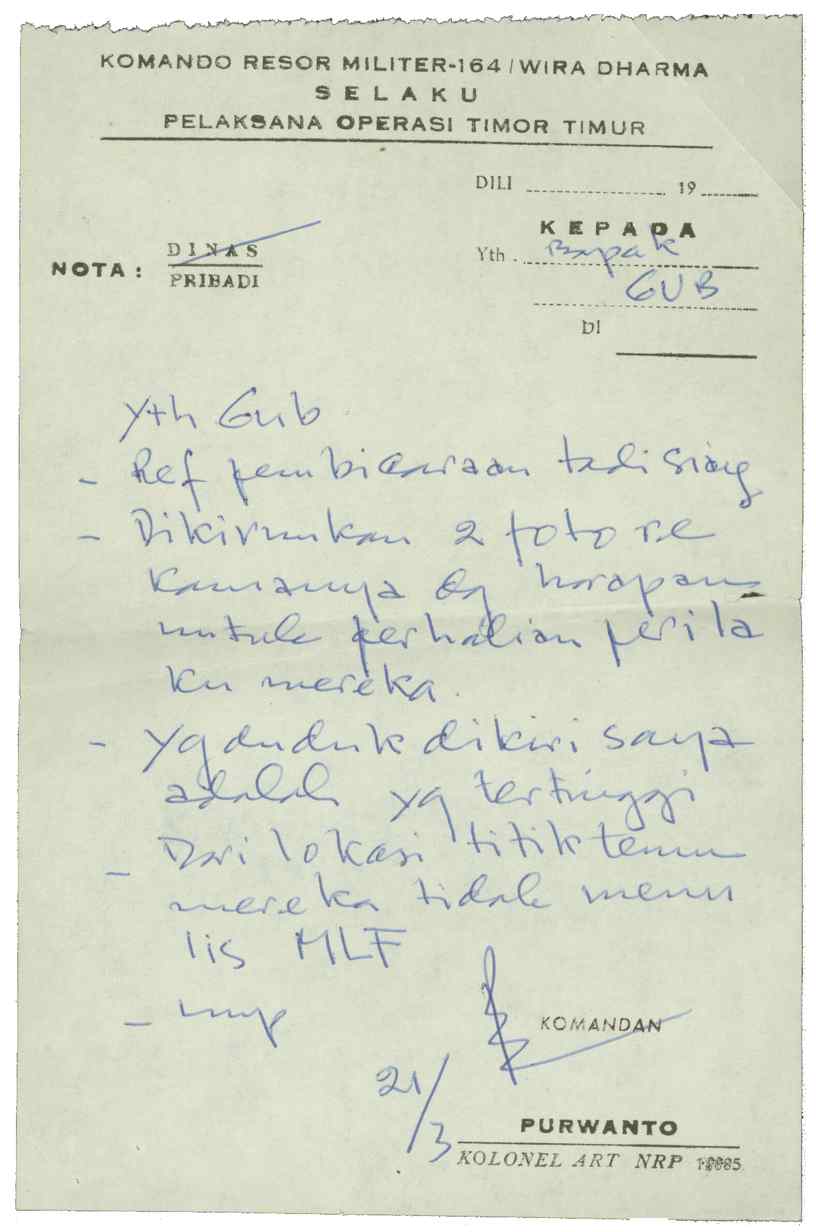 KOMANDO RESOR MILITER-164/WIRA DHARMA
SELAKU
PELAKSANA OPERASI TIMOR TIMUR
DILI 19
KEPADA
Yth. Bapak
GUB
DI
NOTA : DINAS
PRIBADI
Yth Gub
- Ref pembicaraan tadi siang
- Dikirimkan 2 foto re
kamannya dg harapan
untuk perhatian perila
ku mereka.
- Yg duduk dikiri saya
adalah yg tertinggi
- Dari lokasi titik temu
mereka tidak menu
lis MLF
- ump
KOMANDAN
21/3
PURWANTO
KOLONEL ART NRP